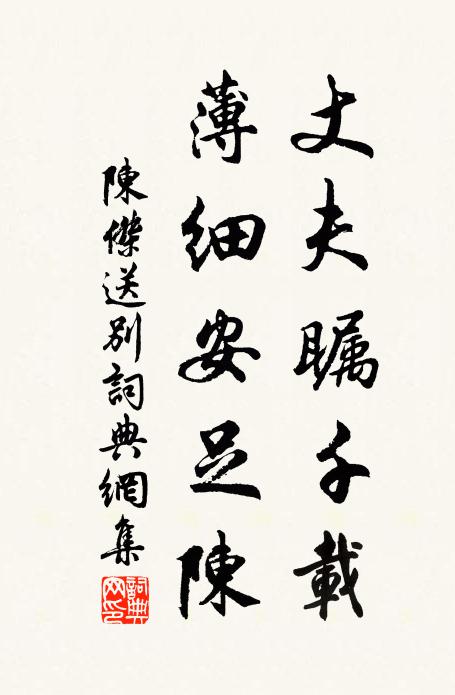 丈夫瞩千載
薄细安足陳
陳傑送别詞典網集
詞典网印